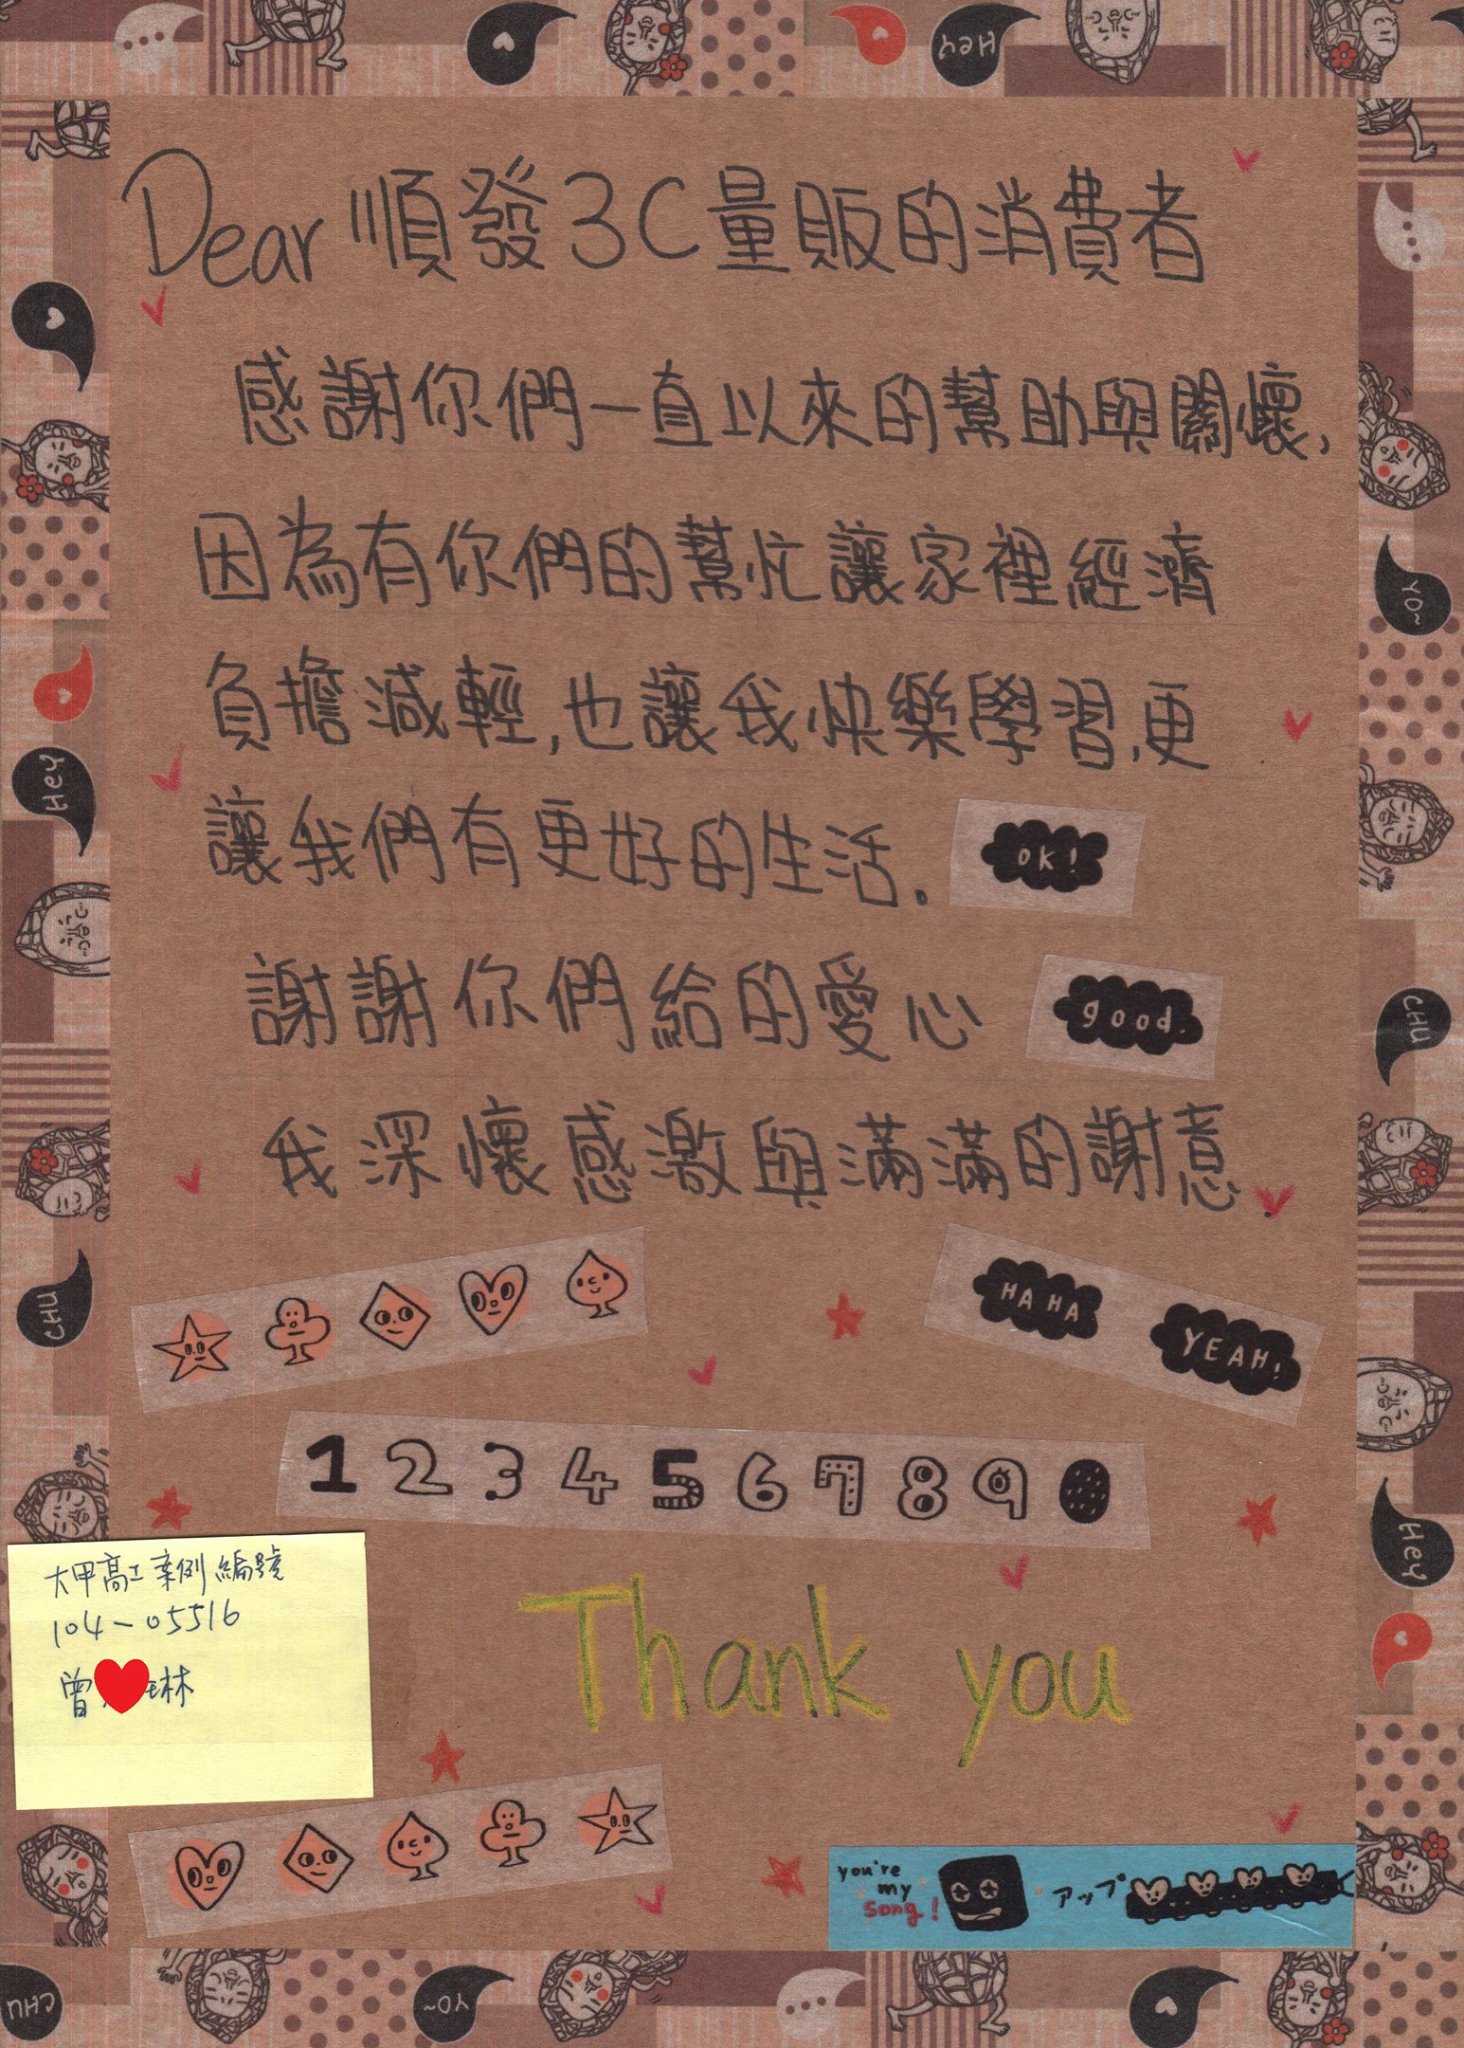 Dear 順發3C量販的消費者
感謝你們一直以來的幫助與關懷,
因為有你們的幫忙讓家裡經濟
負擔減輕,也讓我快樂學習,更
讓我們有更好的生活。
OK!
謝謝你們給的愛心
good.
我深懷感激與滿滿的謝意
HA HA
YEAH!
1 2 3 4 5 6 7 8 9 0
大甲高工案例編號
104-05516
曾 琳
Thank you
you're
my
song!
アップ
Hey
YO~
Hey
CHU
CHU
Hey
CHU
YO~